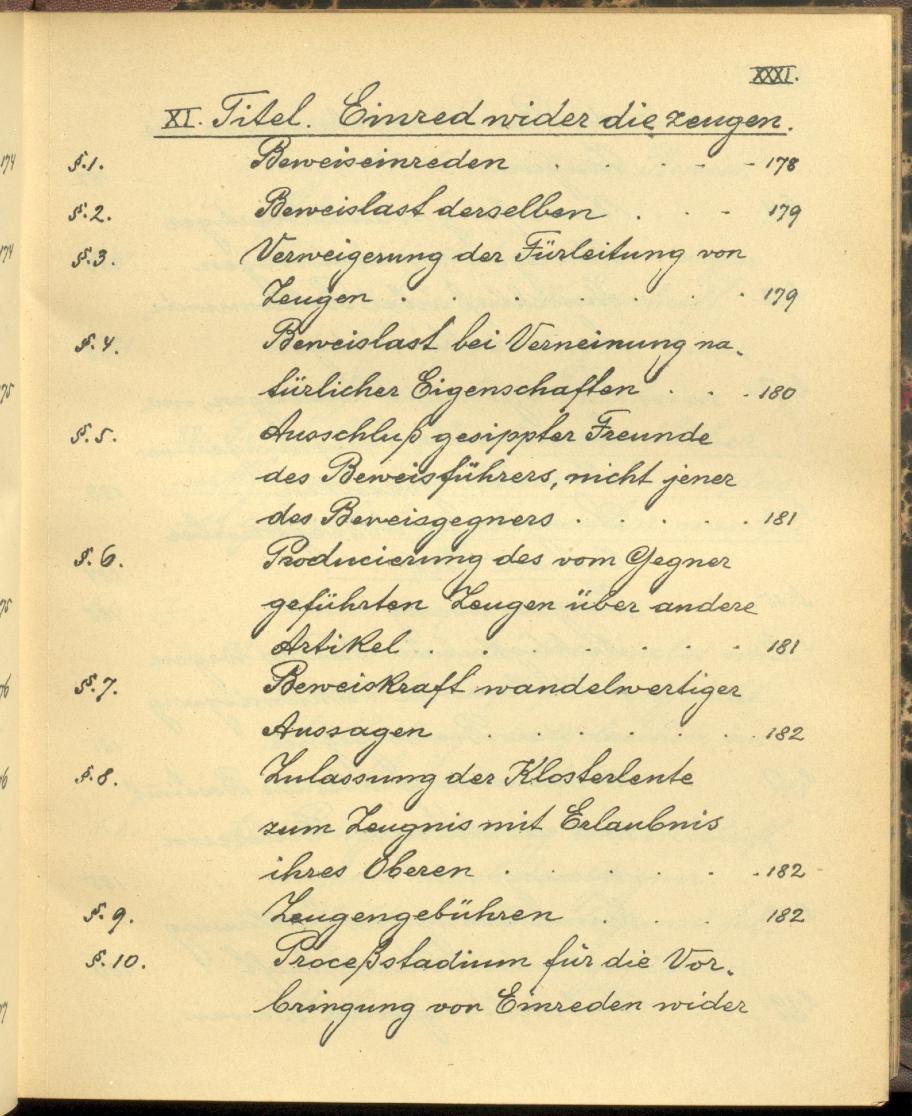 XXXI.
XI. Titel. Einred wider die zeugen.
§.1. Beweiseinreden . - - 178
§.2. Beweislast derselben . . - 179
§.3. Verweigerung der Fürleitung von
Zeugen . . . . 179
§.4. Beweislast bei Verneinung na-
türlicher Eigenschaften . . . 180
§.5. Ausschluß gesippter Freunde
des Beweisführers, nicht jener
des Beweisgegners . . . . . 181
§.6. Producierung des vom Gegner
geführten Zeugen über andere
Artikel . . . . . 181
§.7. Beweiskraft wandelwertiger
Aussagen . . . . . 182
§.8. Zulassung der Klosterleute
zum Zeugnis mit Erlaubnis
ihres Oberen . . . . 182
§.9. Zeugengebühren . . . 182
§.10. Proceßstadium für die Vor-
bringung von Einreden wider